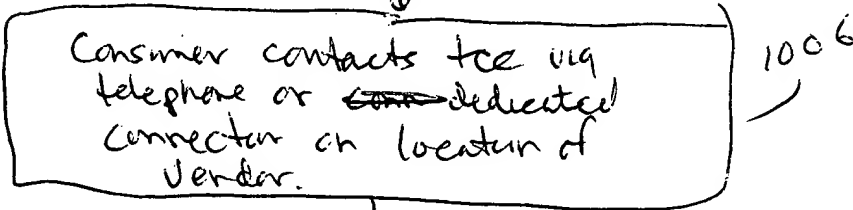 Consumer contacts tce via
telephone or dedicated
connection on location of
Vendor.
1006